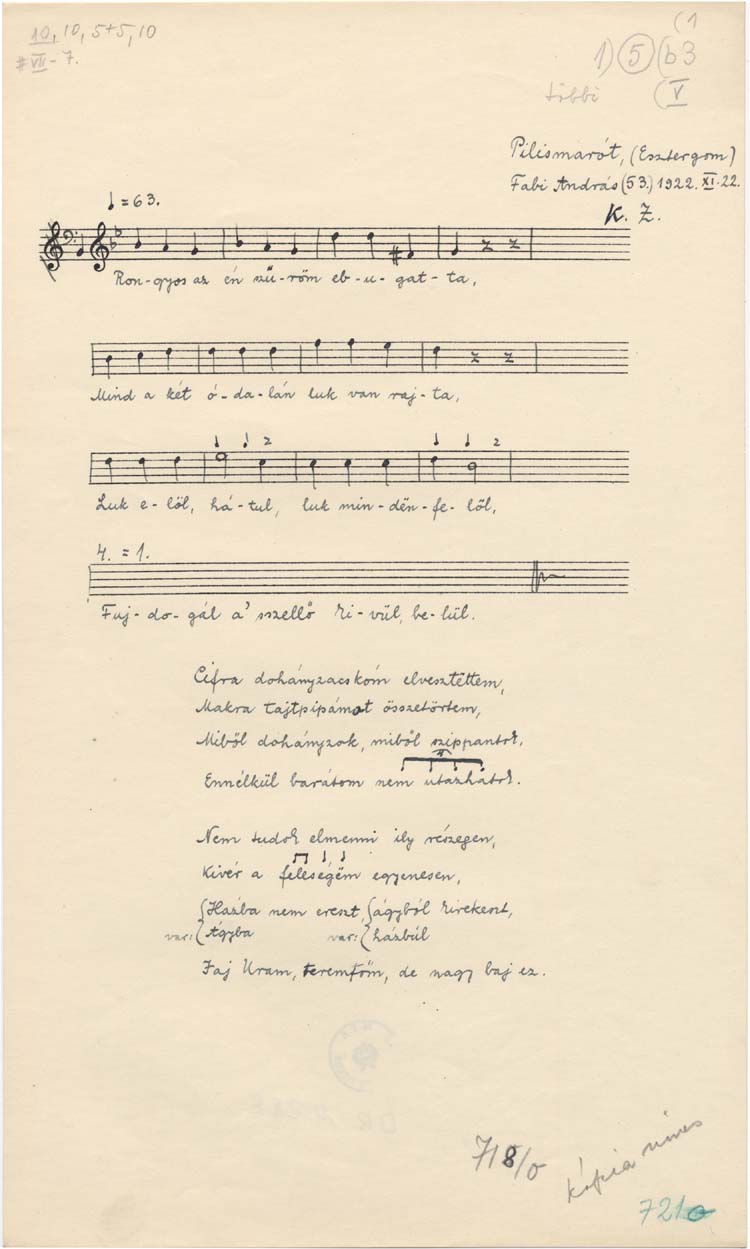 10, 10, 5+5, 10
#VII - 7.
(1
1) 5 (b3
többi (V
Pilismarót, (Esztergom)
Fabi András (53.) 1922. XI. 22.
K. Z.
♩ = 63.
Ron-gyos az én szű-röm eb-u-gat-ta,
Mind a két ó-da-lán luk van raj-ta,
Luk e-löl, há-tul, luk min-dën-fe-lől,
4. = 1.
Fuj-do-gál a' sszellő ki-vül, be-lül.
Cifra dohányzacskóm elvesztëttem,
Makra tajtpipámot összetörtem,
Miből dohányzok, miből szippantok,
Ennélkül barátom nem utazhatok.
Nem tudok elmenni ily részegen,
Kivér a feleségëm egyenesen,
Házba nem ereszt, ágyból kirekeszt,
var: Ágyba var: házbúl
Jaj Uram, teremtőm, de nagy baj ez.
718/0
kópia nincs
7210